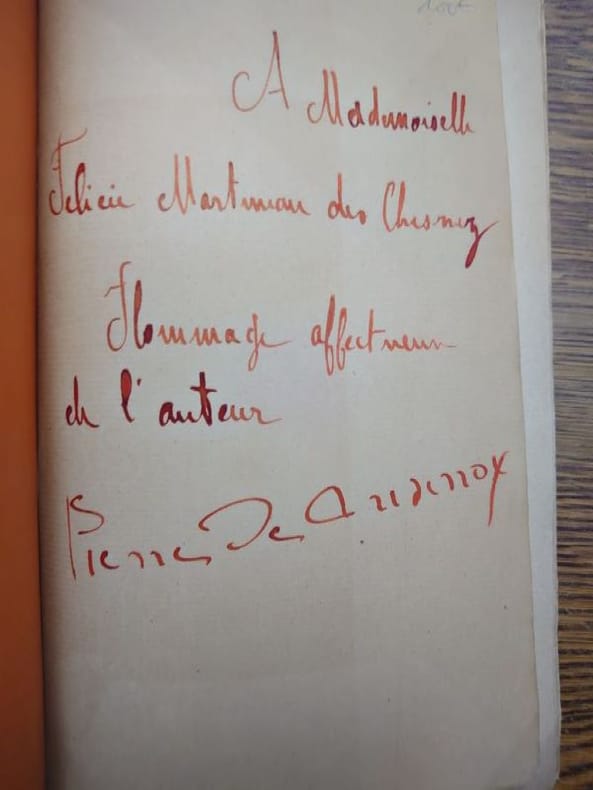 A Mademoiselle
Félicie Martineau des Chesnez
Hommage affectueux
de l'auteur
Pierre de